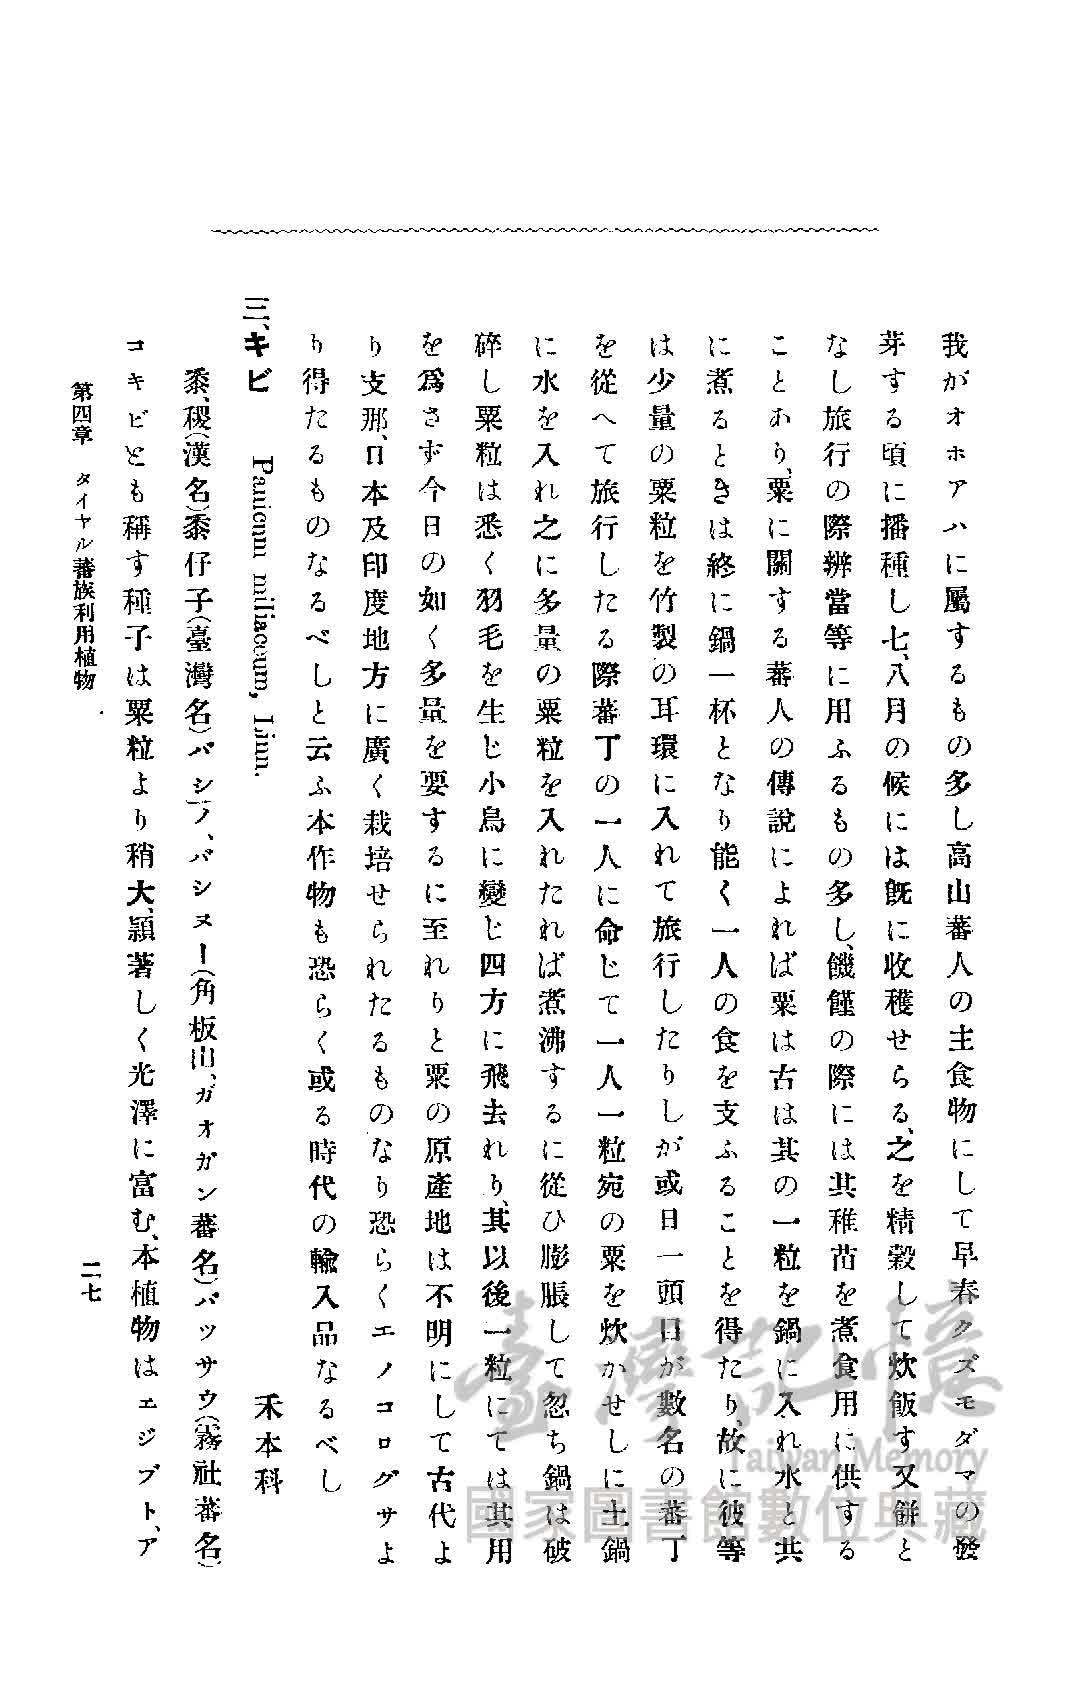 我がオホアハに屬するもの多し高山蕃人の主食物にして早春クズモダマの發
芽する頃に播種し七、八月の候には既に收穫せらる、之を精穀して炊飯す又餅と
なし旅行の際辨當等に用ふるもの多し、饑饉の際には其稚苗を煮食用に供する
ことあり、粟に關する蕃人の傳說によれば粟は古は其の一粒を鍋に入れ水と共
に煮るときは終に鍋一杯となり能く一人の食を支ふることを得たり、故に彼等
は少量の粟粒を竹製の耳環に入れて旅行したりしが或日一頭目が數名の蕃丁
を從へて旅行したる際蕃丁の一人に命じて一人一粒宛の粟を炊かせしに土鍋
に水を入れ之に多量の粟粒を入れたれば煮沸するに從ひ膨脹して忽ち鍋は破
碎し粟粒は悉く羽毛を生じ小鳥に變じ四方に飛去れり、其以後一粒にては其用
を爲さず今日の如く多量を要するに至れりと粟の原產地は不明にして古代よ
り支那、日本及印度地方に廣く栽培せられたるものなり恐らくエノコログサよ
り得たるものなるべしと云ふ本作物も恐らく或る時代の輸入品なるべし
三、キビ Panicum miliaceum, Linn. 禾本科
黍、稷(漢名)黍仔子(臺灣名)バシノ、バシヌー(角板山、ガオガン蕃名)バッサウ(霧社蕃名)
コキビとも稱す種子は粟粒より稍大、頴著しく光澤に富む、本植物はエジプト、ア
第四章 タイヤル蕃族利用植物 二七
臺灣記憶
Taiwan Memory
國家圖書館數位典藏